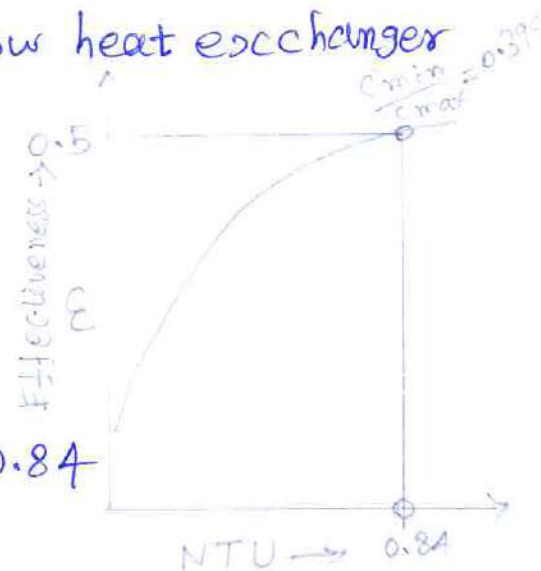 heat escchanger
Cmin
Cmax
=
0.5
Effectiveness →
ε
0.84
NTU →
0.84